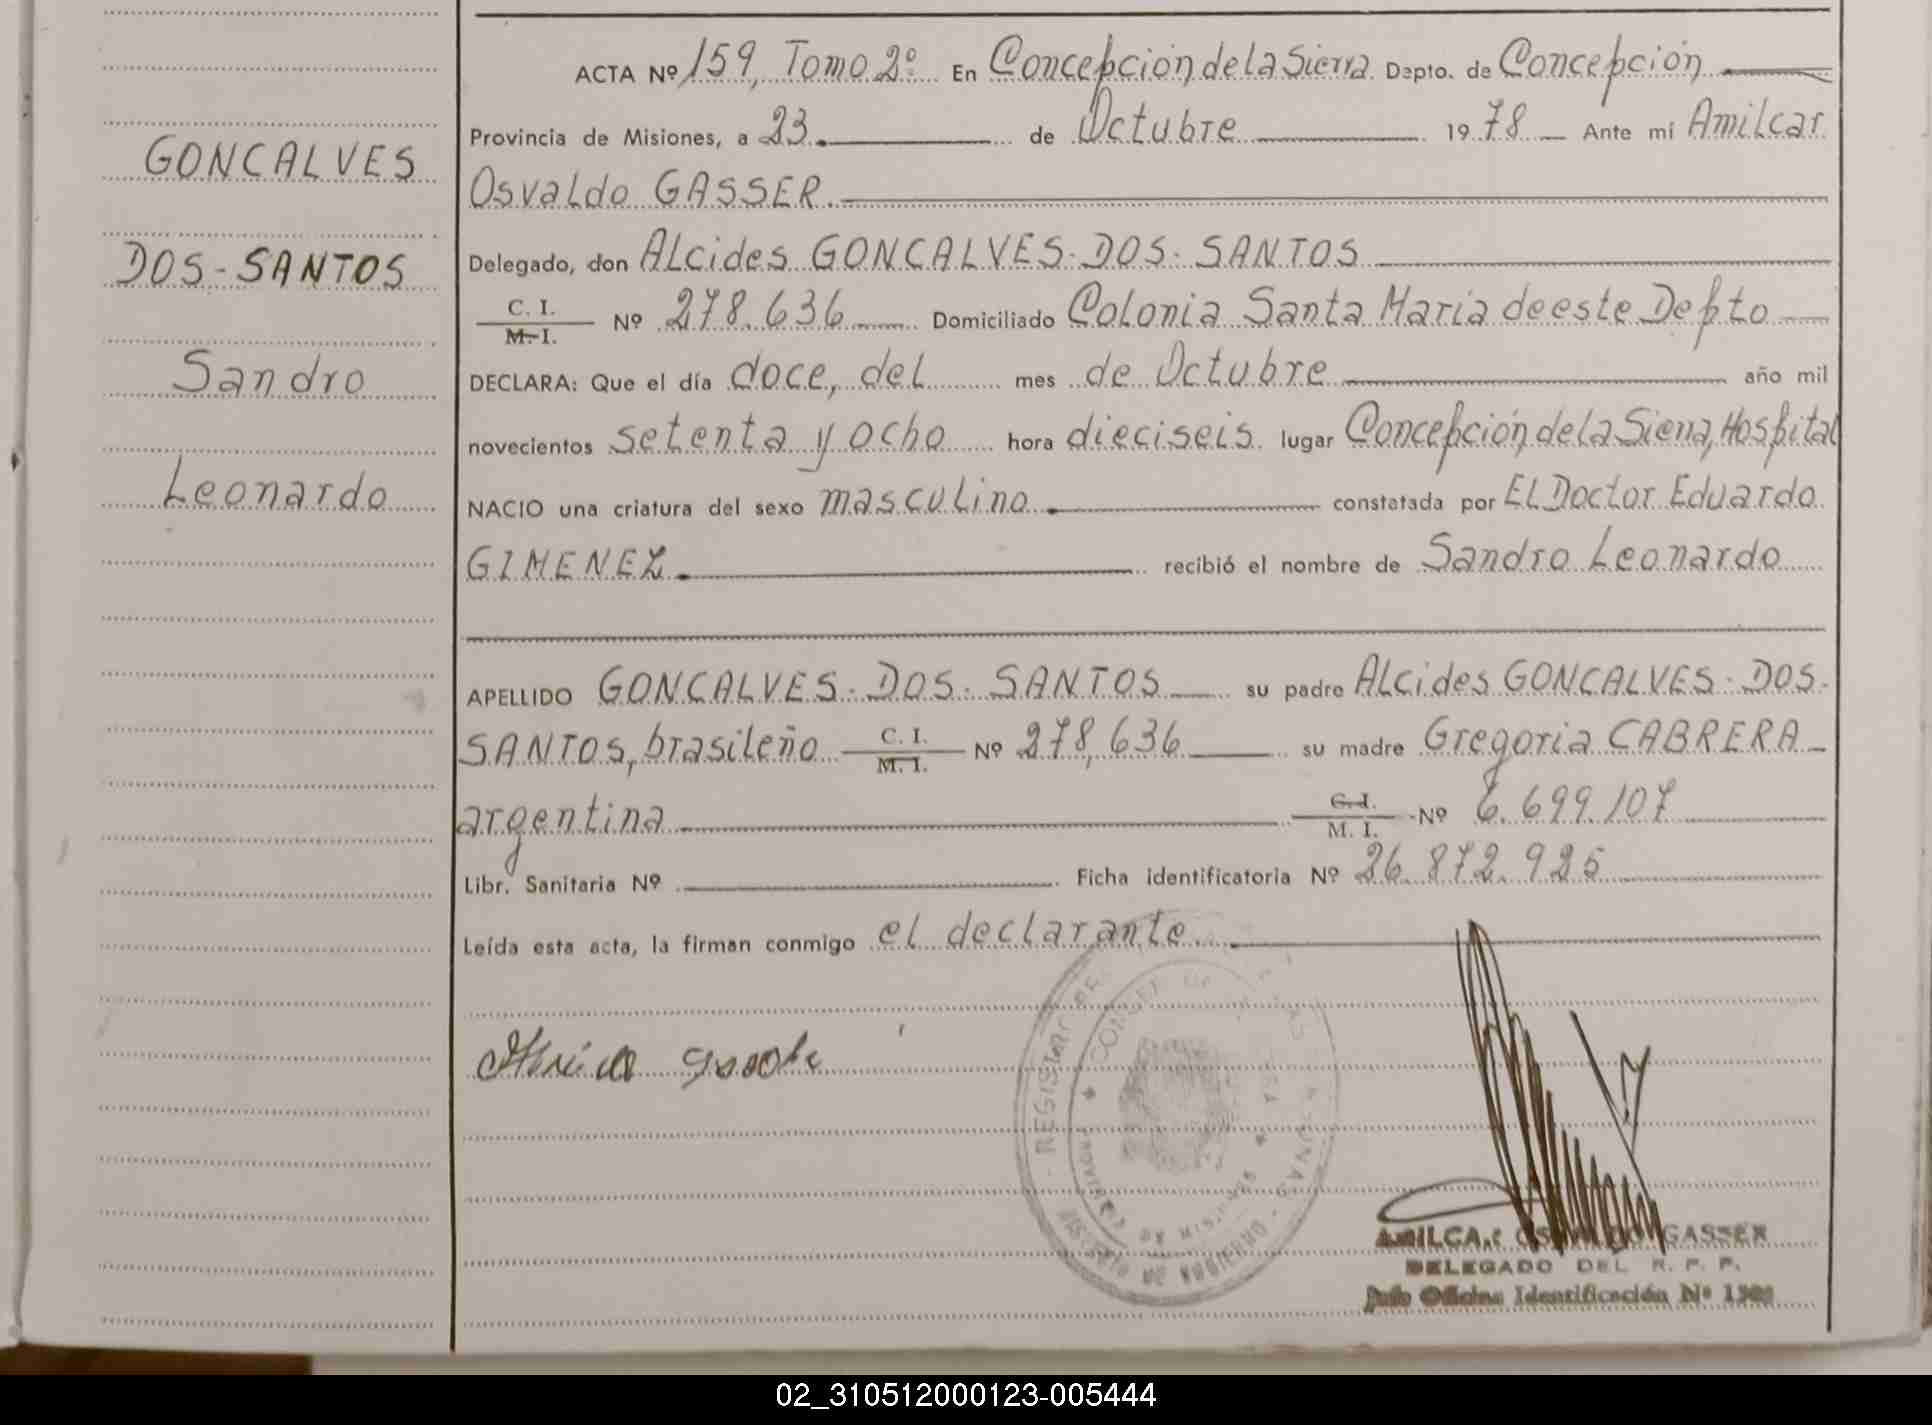 GONCALVES
DOS-SANTOS
Sandro
Leonardo
ACTA Nº 159, Tomo 2º En Concepción de la Sierra Depto. de Concepción
Provincia de Misiones, a 23 de Octubre 1978 Ante mí Amilcar
Osvaldo GASSER.
Delegado, don Alcides GONCALVES-DOS-SANTOS
C. I.
M. I. Nº 278.636 Domiciliado Colonia Santa Maria de este Depto
DECLARA: Que el día doce, del mes de Octubre año mil
novecientos setenta y ocho hora dieciseis lugar Concepción de la Sierra, Hospital
NACIO una criatura del sexo masculino. constatada por El Doctor Eduardo
GIMENEZ. recibió el nombre de Sandro Leonardo
APELLIDO GONCALVES-DOS-SANTOS su padre Alcides GONCALVES-DOS-
SANTOS, brasileño C. I.
M. I. Nº 278,636 su madre Gregoria CABRERA-
argentina C. I.
M. I. Nº 6.699.107
Libr. Sanitaria Nº Ficha identificatoria Nº 26.872.925
Leída esta acta, la firman conmigo el declarante.
REGISTRO
DE MISIONES
AMILCAR OSVALDO GASSER
DELEGADO DEL R. P. P.
Jefe Oficina Identificación Nº
02_310512000123-005444